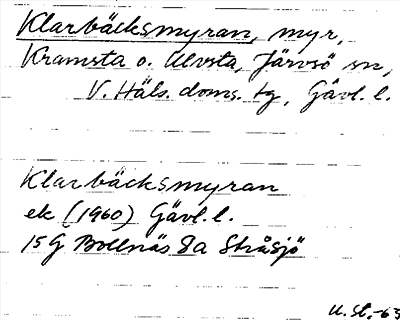 Klarbäcksmyran, myr,
Kramsta o. Ulvsta, Järvsö sn,
V. Häls. doms. tg, Gävl. l.
Klarbäcksmyran
ek (1960) Gävl. l.
15G Bollnäs 8a Stråsjö
U. St. -63